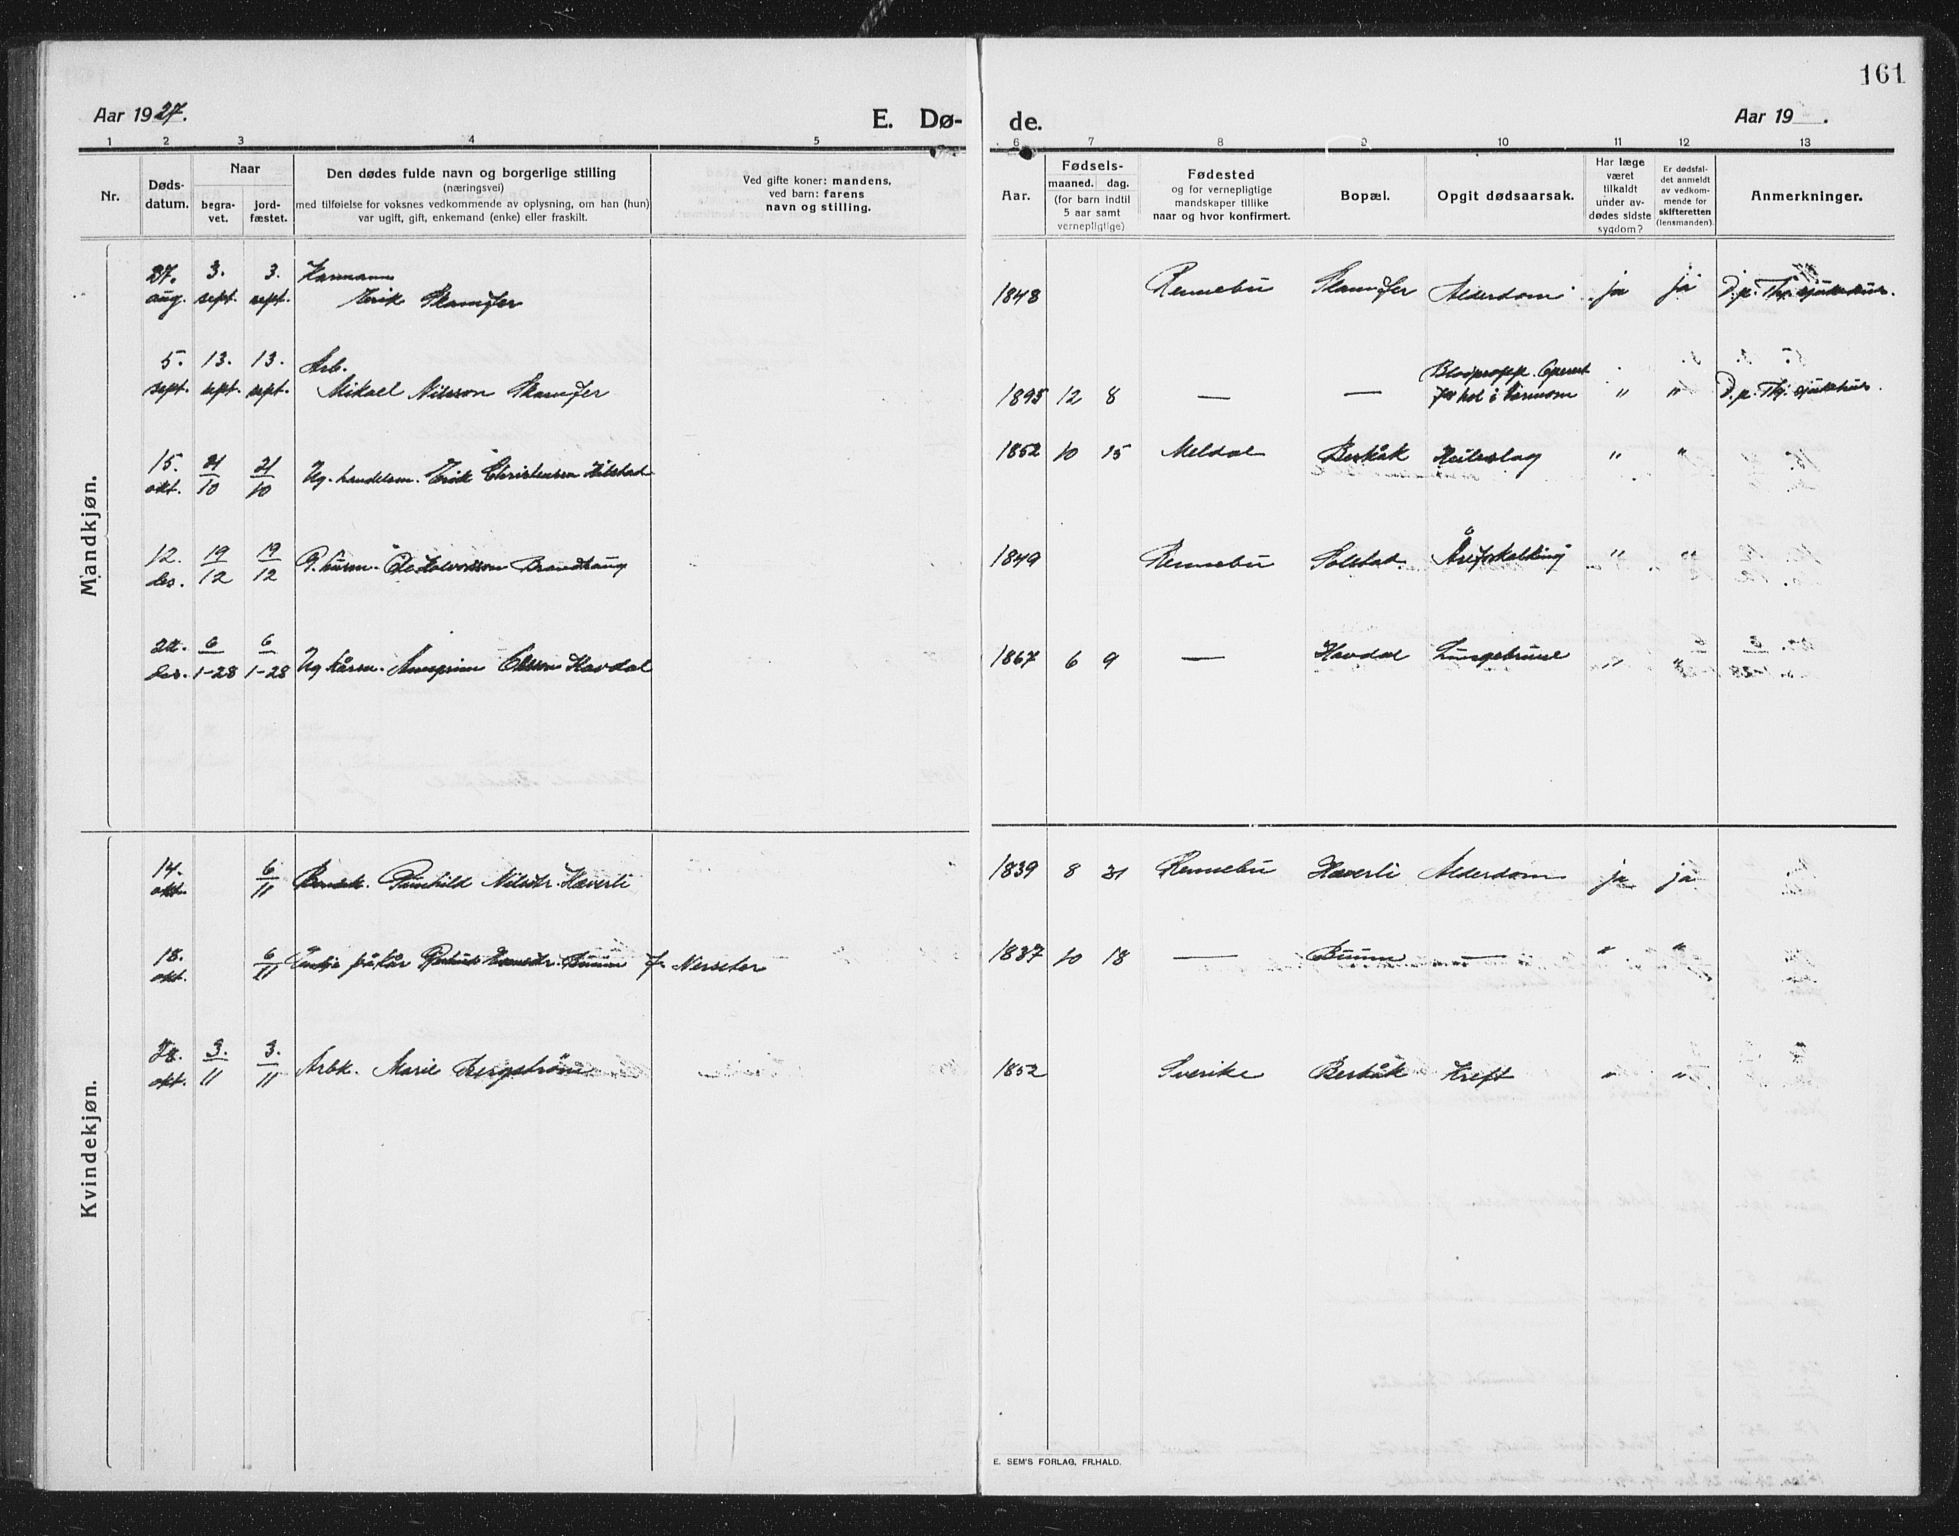 161
Aar 1927.
E. Dø-
de.
Aar 19 .
1 2 3 4 5
6 7 8 9 10 11 12 13
Nr.
Døds-
datum.
Naar
begra-
vet.
jord-
fæstet.
Den dødes fulde navn og borgerlige stilling
(næringsvei)
med tilføielse for voksnes vedkommende av oplysning, om han (hun)
var ugift, gift, enkemand (enke) eller fraskilt.
Ved gifte koner: mandens,
ved barn: farens
navn og stilling.
Aar.
Fødsels-
maaned. dag.
(for barn indtil
5 aar samt
vernepligtige)
Fødested
og for vernepligtige
mandskaper tillike
naar og hvor konfirmert.
Bopæl.
Opgit dødsaarsak.
Har læge
været
tilkaldt
under av-
dødes sidste
sygdom?
Er dødsfal-
det anmeldt
av vedkom-
mende for
skifteretten
(lensmanden).
Anmerkninger.
Mandkjøn.
27. 3. 3. Kårmann
aug. sept. sept. Erik Skamfer
1848 Rennebu Skamfer Alderdom ja ja D. på Thj. sjukehus.
5. 13. 13. Arb.
sept. sept. sept. Mikael Nilsson Skamfer
Blodpropp. Operert
1895 12 8 — — for hol i tarmom " " D. på Thj. sjukehus.
15. 21 21
okt. 10 10 Ug. handelsm. Erik Christensen Hilstad
1852 10 15 Meldal Berkåk Heileslag " "
12. 19 19
des. 12 12 Ole Halvorsson Brandhaug
1849 Rennebu Solstad Åreforkalking " "
6 6
des. 1-28 1-28 Ug kårm. Olsson Havdal
1867 6 9 — Havdal Lungebruse " "
Kvindekjøn.
14. 6
okt. 11 Gunhild Nilsdtr. Haverli
1839 8 31 Rennebu Haverli Alderdom ja ja
18. 6
okt. 11 Enkje frå kår Buum f. Nerseter
1837 10 18 — Buum — " "
28. 3. 3.
okt. 11 11 Arbk. Marie Bergstrøm
1852 Sverike Berkåk Kreft " "
E. SEM'S FORLAG, FR.HALD.